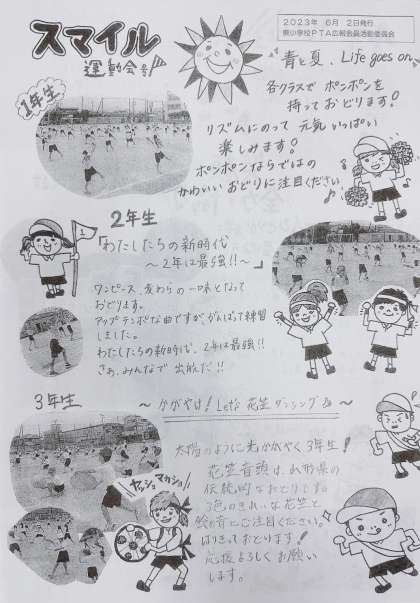 スマイル
運動会号
2023年 6月 2日発行
小学校PTA広報会員活動委員会
1年生
青と夏、Life goes on
各クラスで ポンポンを
持っておどります!
リズムにのって 元気いっぱい
楽しみます!
ポンポンならではの
かわいい おどりに注目ください
2年生
「わたしたちの新時代
～2年は最強!!～」
ワンピース、麦わらの一味となって
おどります。
アップテンポな曲ですが、がんばって練習
しました。
わたしたちの新時代、2年は最強!!
さぁ、みんなで 出航だ!!
3年生
～かがやけ! Let's 花笠ダンシング～
太陽のように光かがやく3年生!
花笠音頭は、山形県の
伝統的なおどりです。
3色のきれいな花笠と
鈴の音にご注目ください。
はりきっておどります!
応援よろしくお願い
します。
ヤッショ マカショ!